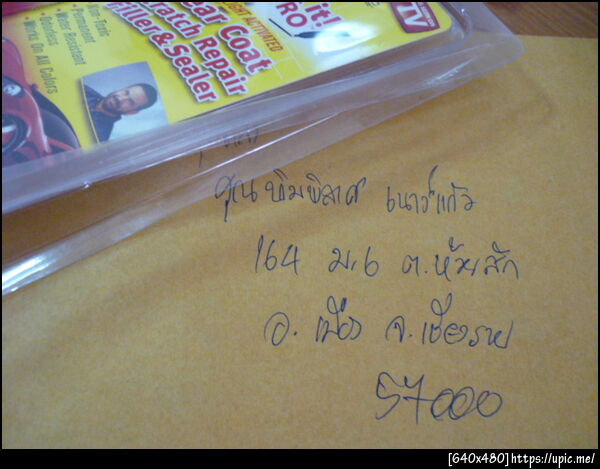 it!
PRO
TV
Non-Toxic
Permanent
Water Resistant
Odorless
Works On All Colors
LIGHT ACTIVATED
Clear Coat
Scratch Repair
Filler & Sealer
คุณ พิมพิลาศ เนาว์แก้ว
164 ม.6 ต.ห้วยสัก
อ.เมือง จ.เชียงราย
57000
[640x480]https://upic.me/